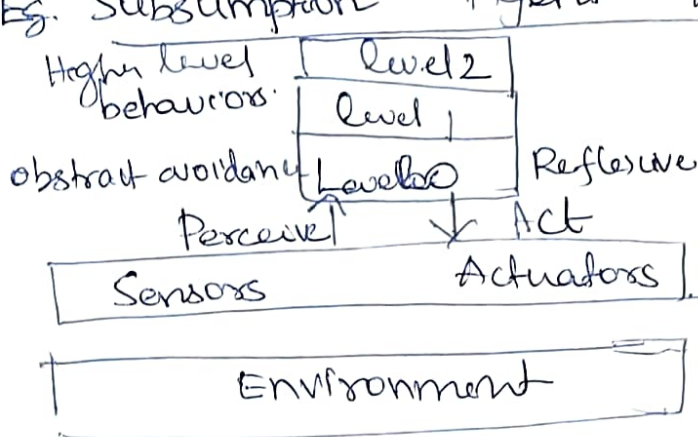 Eg. Subsumption
Higher level level 2
behaviors.
level 1
obstract avoidance Level 0 Reflexive
Perceive Act
Sensors Actuators
Environment